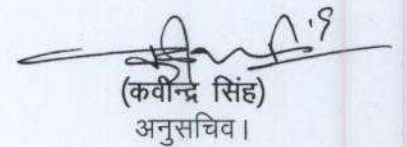 (कवीन्द्र सिंह)
अनुसचिव।